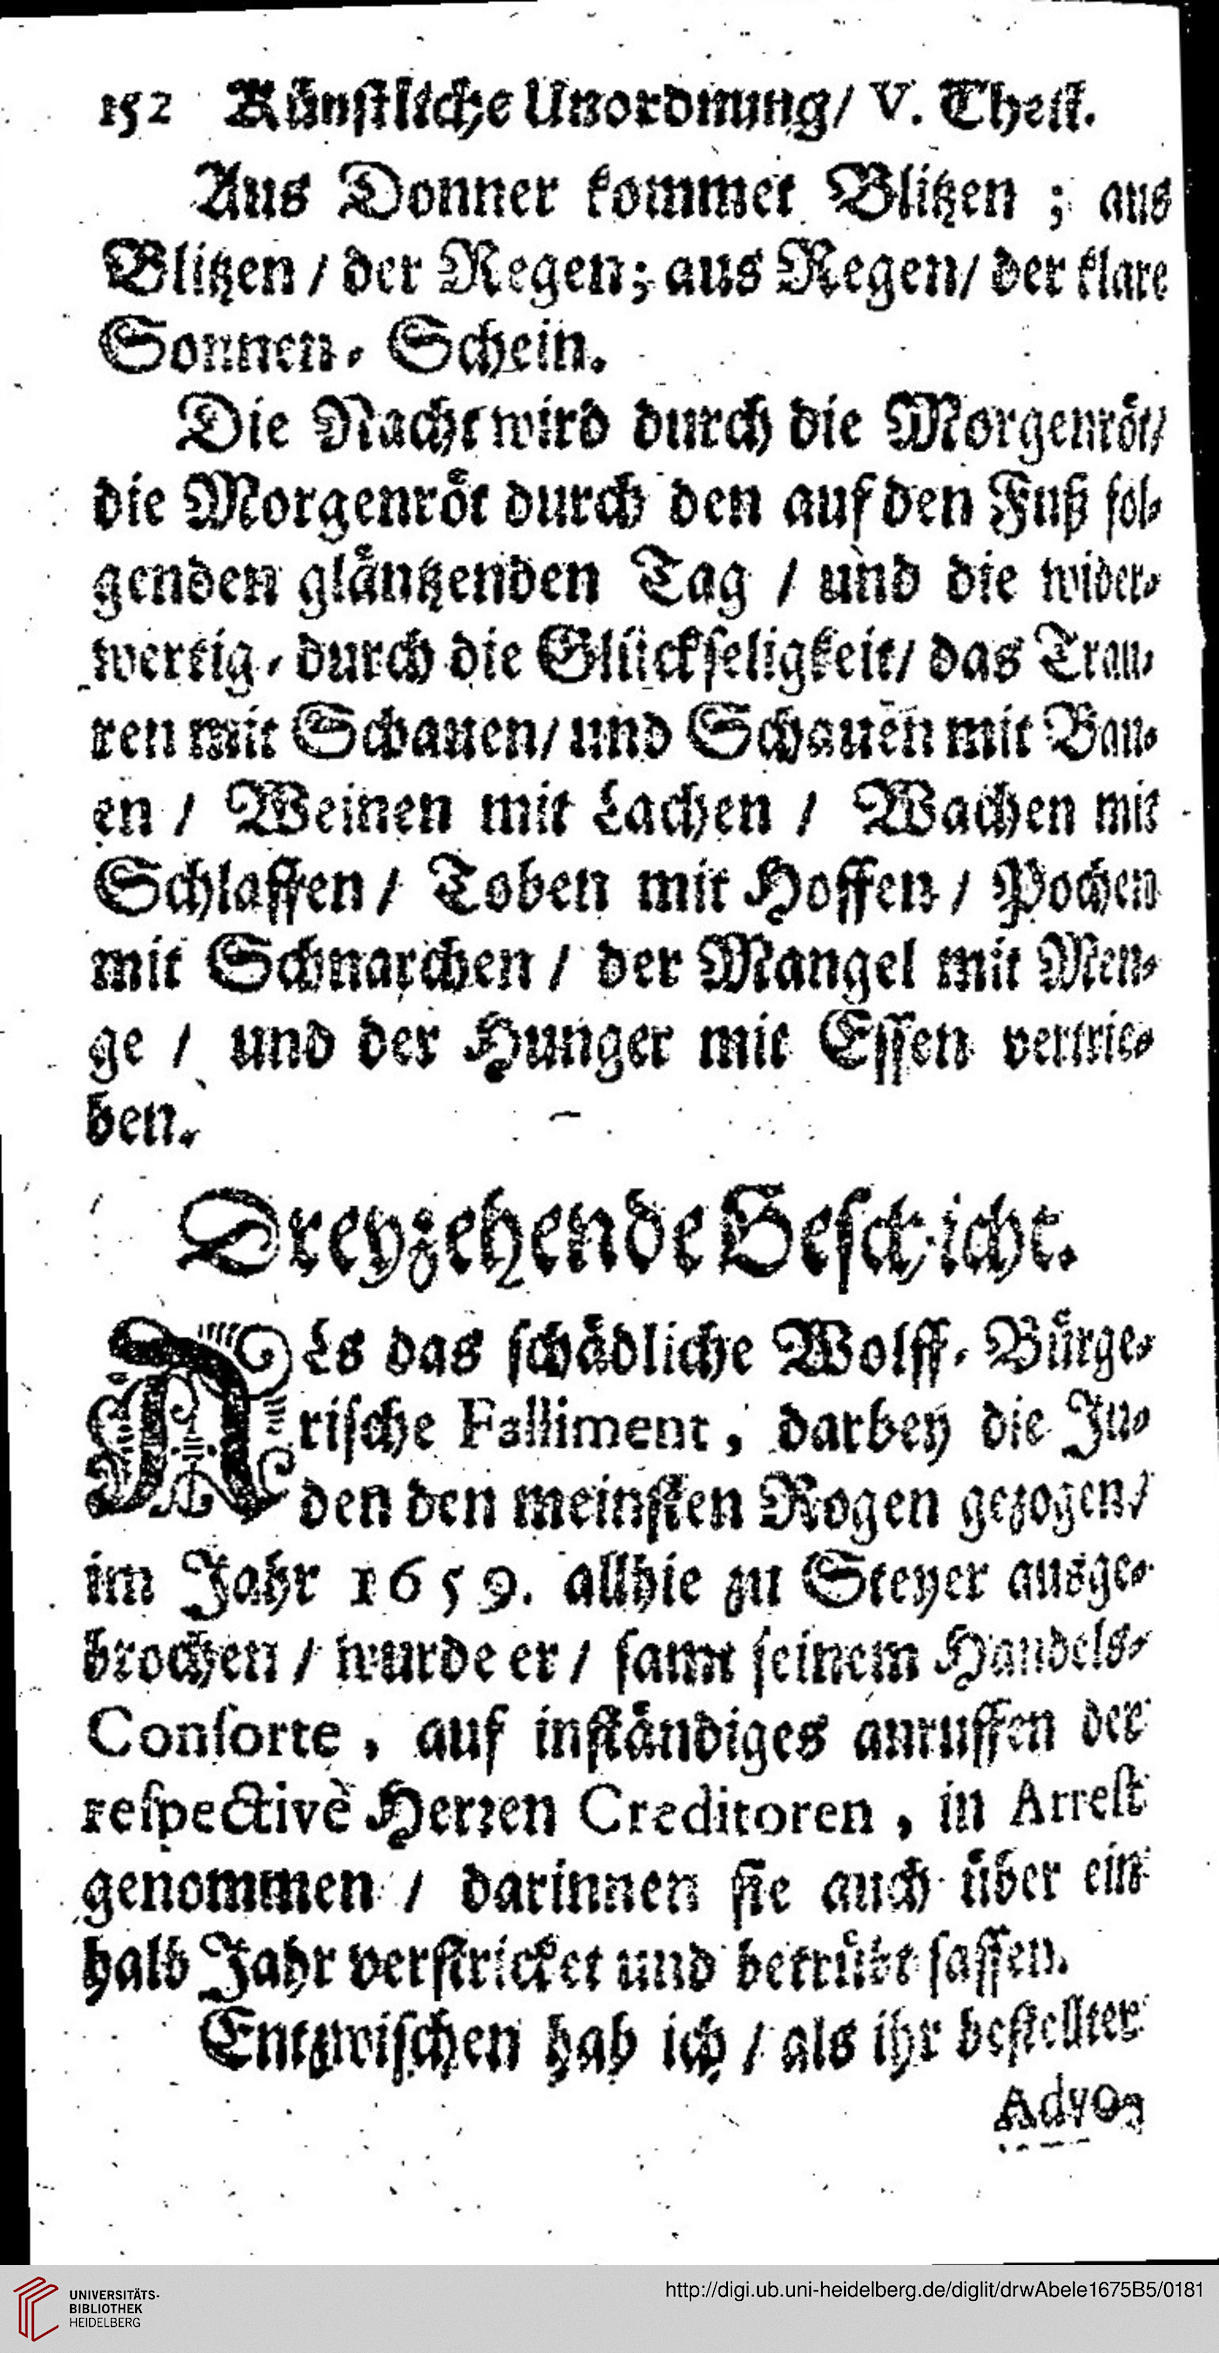 152 Künstliche Unordnung/ V. Theil.
Aus Donner kommet Blitzen ; aus
Blitzen / der Regen; aus Regen/ der klare
Sonnen-Schein.
Die Nacht wird durch die Morgenröt/
die Morgenröt durch den auf den Fuß fol-
genden gläntzenden Tag / und die wider-
wertig- durch die Glückseligkeit/ das Trau-
ren mit Schauen/ und Schauen mit Bau-
en / Weinen mit Lachen / Wachen mit
Schlaffen / Toben mit Hoffen / Pochen
mit Schnarchen / der Mangel mit Men-
ge / und der Hunger mit Essen vertrie-
ben.
Dreyzehende Geschicht.
ALs das schädliche Wolff-Bürge-
rische Falliment, darbey die Ju-
den den meinsten Rogen gezogen/
im Jahr 1659. allhie zu Steyer ausge-
brochen / wurde er / samt seinem Handels-
Consorte, auf inständiges anruffen der
respectivè Herren Creditoren, in Arrest
genommen / darinnen sie auch über ein
halb Jahr verstricket und betrübt sassen.
Entzwischen hab ich / als ihr bestellter
Advo-
UNIVERSITÄTS-
BIBLIOTHEK
HEIDELBERG
http://digi.ub.uni-heidelberg.de/diglit/drwAbele1675B5/0181